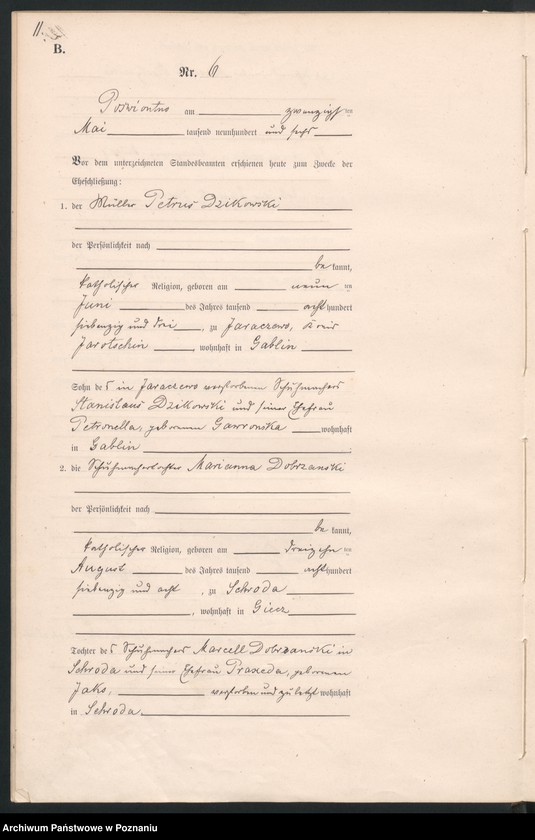 11.
B.
Nr. 6
am zwanzigsten
Mai tausend neunhundert und sechs
Vor dem unterzeichneten Standesbeamten erschienen heute zum Zwecke der
Eheschließung:
1. der Müller Petrus Dzikowski
der Persönlichkeit nach
be kannt,
katholischer Religion, geboren am neun ten
Juni des Jahres tausend acht hundert
siebenzig und drei, zu Jaraczewo, Kreis
Jarotschin, wohnhaft in Gablin
Sohn des in Jaraczewo verstorbenen Schuhmachers
Stanislaus Dzikowski und seiner Ehefrau
Petronella, geborenen Gawronska wohnhaft
in Gablin
2. die Schuhmachertochter Marianna Dobrzanski
der Persönlichkeit nach
be kannt,
katholischer Religion, geboren am dreizehn ten
August des Jahres tausend acht hundert
siebenzig und acht, zu Schroda
, wohnhaft in Giecz
Tochter des Schuhmachers Marcell Dobrzanski in
Schroda und seiner Ehefrau Praxeda, geborenen
Jaks, verstorben und zuletzt wohnhaft
in Schroda
Archiwum Państwowe w Poznaniu